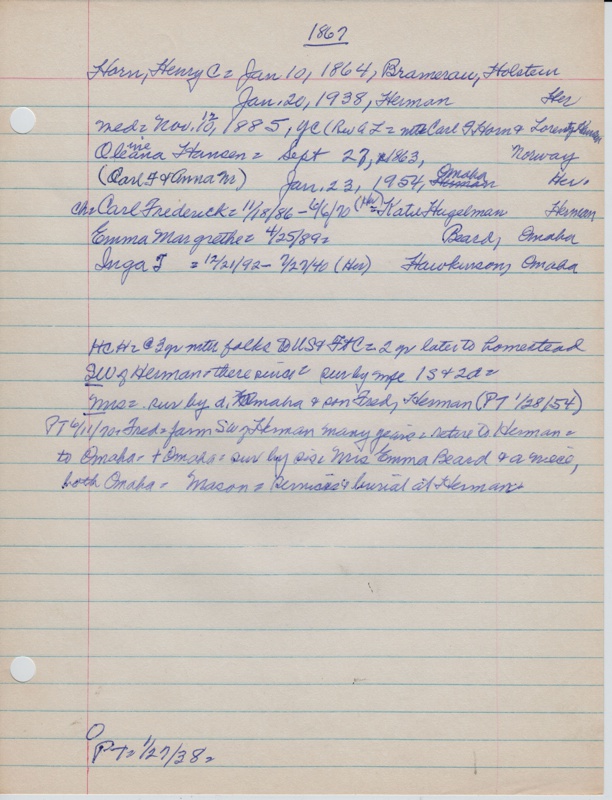 1867
Horn, Henry C = Jan 10, 1864, Bramerau, Holstein
Jan. 20, 1938, Herman Her
med = Nov. 10, 12 1885, YC (Rev A L = wts Carl F. Horn & Lorentz Hansen
Oleana ine Hansen = Sept 27, 1863, Norway
(Carl F & Anna M) Jan. 23, 1954, Herman Omaha Her.
ch = Carl Frederick = 11/18/86 - 6/6/70 (Her) = Katie Hugelman Herman
Emma Margrethe = 4/25/89 = Beard, Omaha
Inga T = 12/21/92 - 7/27/40 (Her) Hawkinson, Omaha
HCH = @ 3 yr with folks to US & Ft C = 2 yr later to homestead
SW of Herman = there since = sur by wife 1 S & 2 d =
Mrs = sur by d, Omaha & son Fred, Herman (PT 1/28/54)
PT 6/11/70 = Fred = farm SW of Herman many years = retire to Herman =
to Omaha = + Omaha = sur by sis = Mrs Emma Beard & a niece,
both Omaha = Mason = services & burial at Herman
O
PT = 1/27/38 =